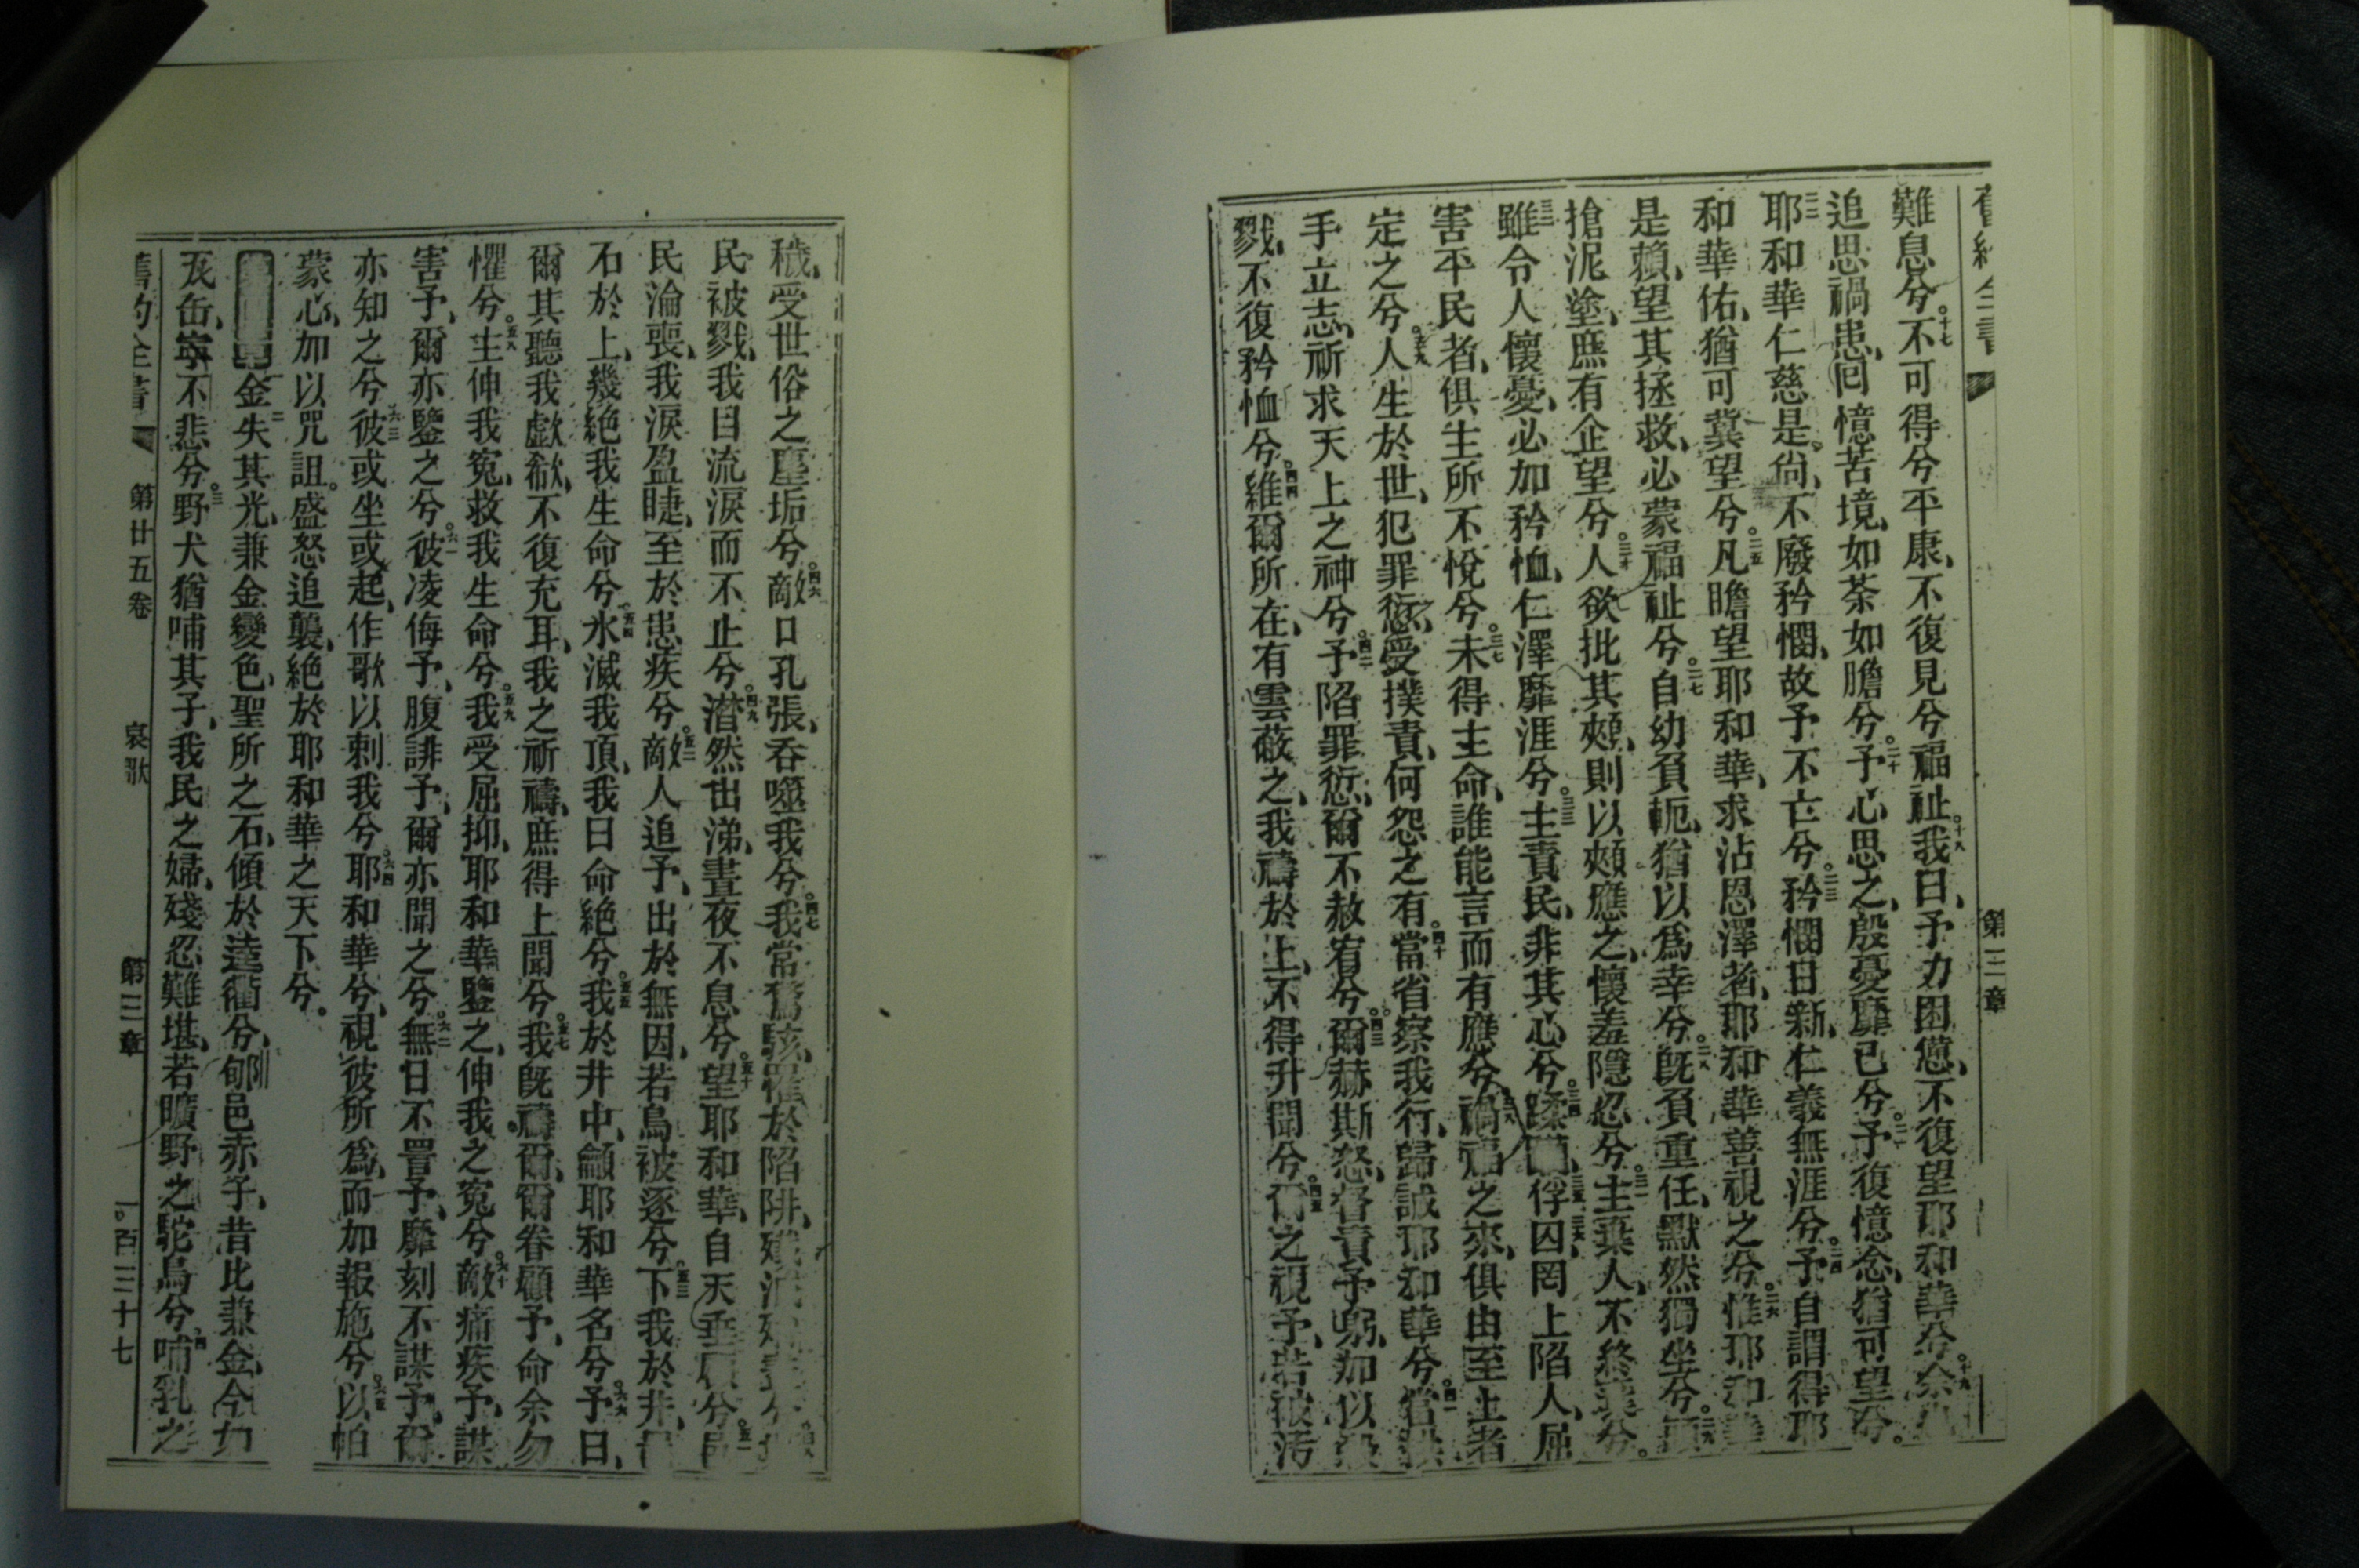 舊約全書 第三章
難息兮。十七不可得兮平康、不復見兮福祉。十八我曰、予力困憊、不復望耶和華兮。十九
追思禍患、囘憶苦境、如荼如膽兮。二十予心思之、殷憂靡已兮。二一予復憶念、猶可望兮。
二二耶和華仁慈是尙、不廢矜憫、故予不亡兮。二三矜憫日新、仁義無涯兮。二四予自謂得耶
和華佑、猶可冀望兮。二五凡瞻望耶和華、求沾恩澤者、耶和華善視之兮。二六惟耶和華
是賴、望其拯救、必蒙福祉兮。二七自幼負軛、猶以爲幸兮。二八旣負重任、默然獨坐兮。二九
搶泥塗、庶有企望兮。三十人欲批其頰、則以頰應之、懷羞隱忍兮。三一主棄人、不終棄兮。
三二雖令人懷憂、必加矜恤、仁澤靡涯兮。三三主責民、非其心兮。三四蹂躪俘囚、三五三六罔上陷人、屈
害平民者、俱主所不悅兮。三七未得主命、誰能言而有應兮。三八禍福之來、俱由至上者
定之兮。三九人生於世、犯罪愆、受撲責、何怨之有。四十當省察我行、歸誠耶和華兮。四一當
手立志、祈求天上之神兮。四二予陷罪愆、爾不赦宥兮。四三爾赫斯怒、督責予躬、加以殺
戮、不復矜恤兮。四四維爾所在、有雲蔽之、我禱於上、不得升聞兮。四五爾之視予、若被汚
穢、受世俗之塵垢兮。四六敵口孔張、吞噬我兮。四七我常驚駭、罹於陷阱、
民被戮、我目流淚而不止兮。四九潸然出涕、晝夜不息兮。五十望耶和華、自天垂顧兮。五一邑
民淪喪、我淚盈睫、至於患疾兮。五二敵人追予、出於無因、若鳥被逐兮。五三下我於井、
石於上、幾絕我生命兮。五四水滅我頂、我曰命絕兮。五五我於井中、籲耶和華名兮。五六予曰、
爾其聽我歔欷、不復充耳、我之祈禱、庶得上聞兮。五七我旣禱爾、爾眷顧予、命余勿
懼兮。五八主伸我寃、救我生命兮。五九我受屈抑、耶和華鑒之、伸我之寃兮。六十敵痛疾予、謀
害予、爾亦鑒之兮。六一彼凌侮予、腹誹予、爾亦聞之兮。六二無日不詈予、靡刻不謀予、爾
亦知之兮。六三彼或坐或起、作歌以刺我兮。六四耶和華兮、視彼所爲、而加報施兮。六五以帕
蒙心、加以咒詛。盛怒追襲、絕於耶和華之天下兮。
第四章 一金失其光、兼金變色、聖所之石、傾於逵衢兮。二郇邑赤子、昔比兼金、今如
瓦缶、寧不悲兮。三野犬猶哺其子、我民之婦、殘忍難堪、若曠野之駝鳥兮。四哺乳之
舊約全書 第廿五卷 哀歌 第三章 一百三十七